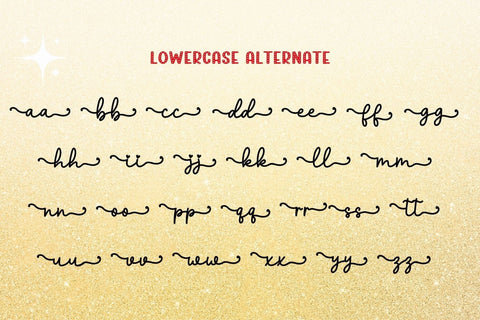 LOWERCASE ALTERNATE
aa bb cc dd ee ff gg
hh ii jj kk ll mm
nn oo pp qq rr ss tt
uu vv ww xx yy zz